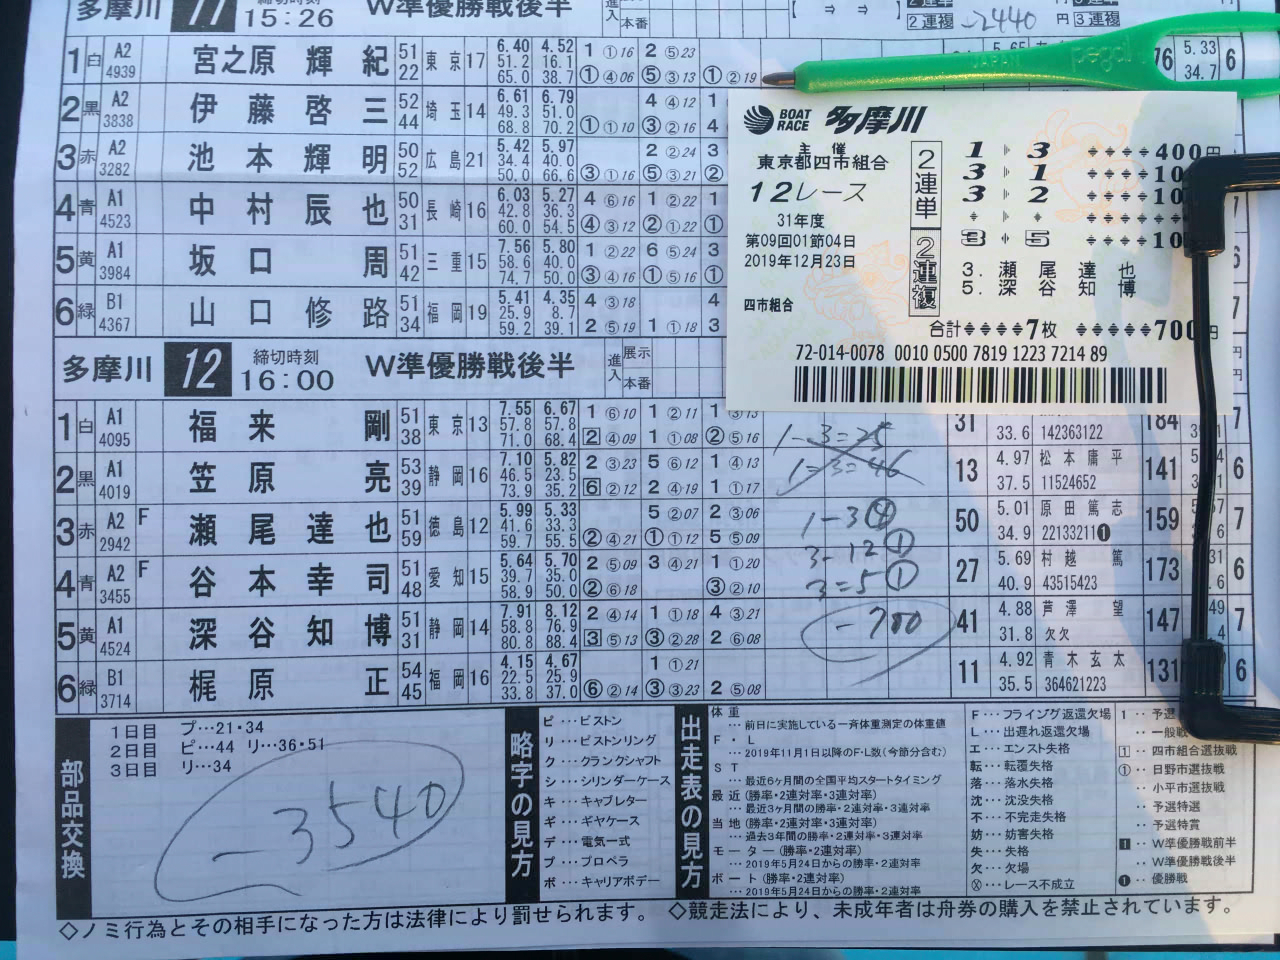 多摩川 11 締切時刻 15:26 W準優勝戦後半 進入 本番 【 ⇒ ⇒ 2連複 -2440 円 3連複
1 白 A2 4939 宮之原 輝 紀 51 22 東京 17 6.40 51.2 65.0 4.52 16.1 38.7 1 ①16 2 ⑤23 ① ④06 ⑤ ③13 ① ②19 76 5.33 34.7 6
2 黒 A2 3838 伊 藤 啓 三 52 44 埼玉 14 6.61 49.3 68.8 6.79 51.0 70.2 4 ④12 1 ① ①10 ③ ②16 4
3 赤 A2 3282 池 本 輝 明 50 52 広島 21 5.42 34.4 50.0 5.97 40.0 66.6 2 ②24 3 ③ ①16 ⑤ ③21 ②
4 青 A1 4523 中 村 辰 也 50 31 長崎 16 6.03 42.8 60.0 5.27 36.3 54.5 4 ⑥16 1 ②22 1 ④ ③12 ② ①22 ①
5 黄 A1 3984 坂 口 周 51 42 三重 15 7.56 58.6 74.7 5.80 40.0 50.0 1 ②22 6 ⑤24 3 ③ ④16 ① ⑤16 ①
6 緑 B1 4367 山 口 修 路 51 34 福岡 19 5.41 25.9 59.2 4.35 8.7 39.1 4 ③18 4 2 ⑤19 1 ①18 3
BOAT RACE 多摩川
主 催
東京都四市組合
12レース
31年度
第09回01節04日
2019年12月23日
四市組合
2連単
1 3 400円
3 1 10
3 2 10
2連複
3 5 10
3. 瀬 尾 達 也
5. 深 谷 知 博
合計 7枚 700円
72-014-0078 0010 0500 7819 1223 7214 89
JAPAN
多摩川 12 締切時刻 16:00 W準優勝戦後半 進入 展示 本番
1 白 A1 4095 福 来 剛 51 38 東京 13 7.55 57.8 71.0 6.67 57.8 68.4 1 ⑥10 1 ②11 1 ③13 2 ④09 1 ①08 ② ⑤16 31 33.6 142363122 184 7
2 黒 A1 4019 笠 原 亮 53 39 静岡 16 7.10 46.5 73.9 5.82 23.5 35.2 2 ③23 5 ⑥12 1 ④13 6 ②12 2 ④19 1 ①17 13 4.97 37.5 松本庸平 11524652 141 6
3 赤 A2 2942 F 瀬 尾 達 也 51 59 徳島 12 5.99 41.6 59.7 5.33 33.3 55.5 5 ②07 2 ③06 ② ④21 ① ①12 5 ⑤09 50 5.01 34.9 原田篤志 22133211❶ 159 7
4 青 A2 3455 F 谷 本 幸 司 51 48 愛知 15 5.64 39.7 58.9 5.70 35.0 50.0 2 ⑤09 3 ④21 1 ①20 ② ⑥18 ③ ②10 27 5.69 40.9 村越 篤 43515423 173 6
5 黄 A1 4524 深 谷 知 博 51 31 静岡 14 7.91 58.8 80.8 8.12 76.9 88.4 2 ④14 1 ①18 4 ③21 3 ⑤13 ③ ②28 2 ⑥08 41 4.88 31.8 芦澤 望 欠欠 147 7
6 緑 B1 3714 梶 原 正 54 45 福岡 16 4.15 22.5 33.8 4.67 25.9 37.0 1 ①21 ⑥ ②14 ③ ③23 2 ⑤08 11 4.92 35.5 青木玄太 364621223 131 6
1-3=25
1=3=46
1-3④
3-12①
3=5①
-700
部品交換
1日目 プ…21・34
2日目 ピ…44 リ…36・51
3日目 リ…34
-3540
略字の見方
ピ…ピストン
リ…ピストンリング
ク…クランクシャフト
シ…シリンダーケース
キ…キャブレター
ギ…ギヤケース
デ…電気一式
プ…プロペラ
ボ…キャリアボデー
出走表の見方
体重
…前日に実施している一斉体重測定の体重値
F・L
…2019年11月1日以降のF・L数(今節分含む)
ST
…最近6ヶ月間の全国平均スタートタイミング
最近(勝率・2連対率・3連対率)
…最近3ヶ月間の勝率・2連対率・3連対率
当地(勝率・2連対率・3連対率)
…過去3年間の勝率・2連対率・3連対率
モーター(勝率・2連対率)
…2019年5月24日からの勝率・2連対率
ボート(勝率・2連対率)
…2019年5月24日からの勝率・2連対率
F…フライング返還欠場
L…出遅れ返還欠場
エ…エンスト失格
転…転覆失格
落…落水失格
沈…沈没失格
不…不完走失格
妨…妨害失格
失…失格
欠…欠場
ⓧ…レース不成立
1…予選
…一般戦
1…四市組合選抜戦
①…日野市選抜戦
…小平市選抜戦
…予選特選
…予選特賞
1…W準優勝戦前半
…W準優勝戦後半
❶…優勝戦
◇ノミ行為とその相手になった方は法律により罰せられます。 ◇競走法により、未成年者は舟券の購入を禁止されています。